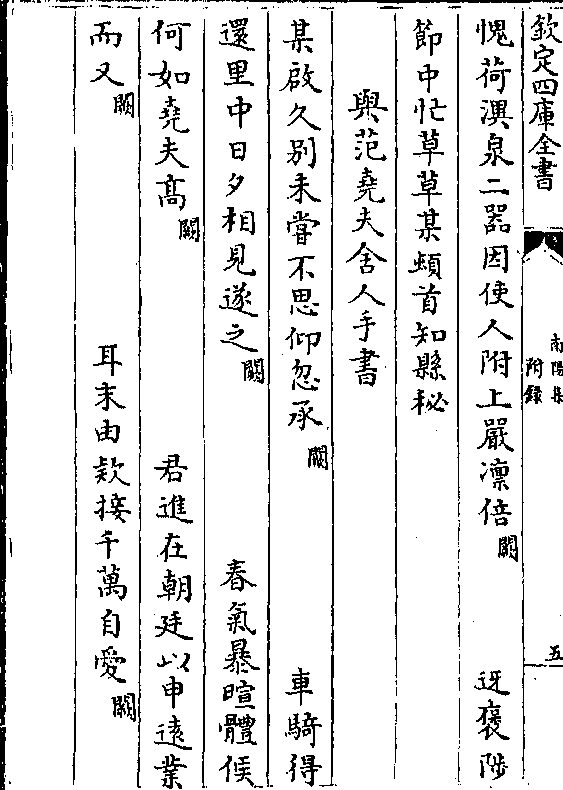 欽定四庫全書
南陽集
附錄
五
愧荷澳泉二器因使人附上嚴凛倍闕 迓褒陟
節中忙草草某頓首知縣秘
與范堯夫舍人手書
某啟久別未嘗不思仰忽承闕 車騎得
還里中日夕相見遂之闕 春氣暴暄體候
何如堯夫高闕 君進在朝廷以申遠業
而又闕 耳末由欵接千萬自愛闕